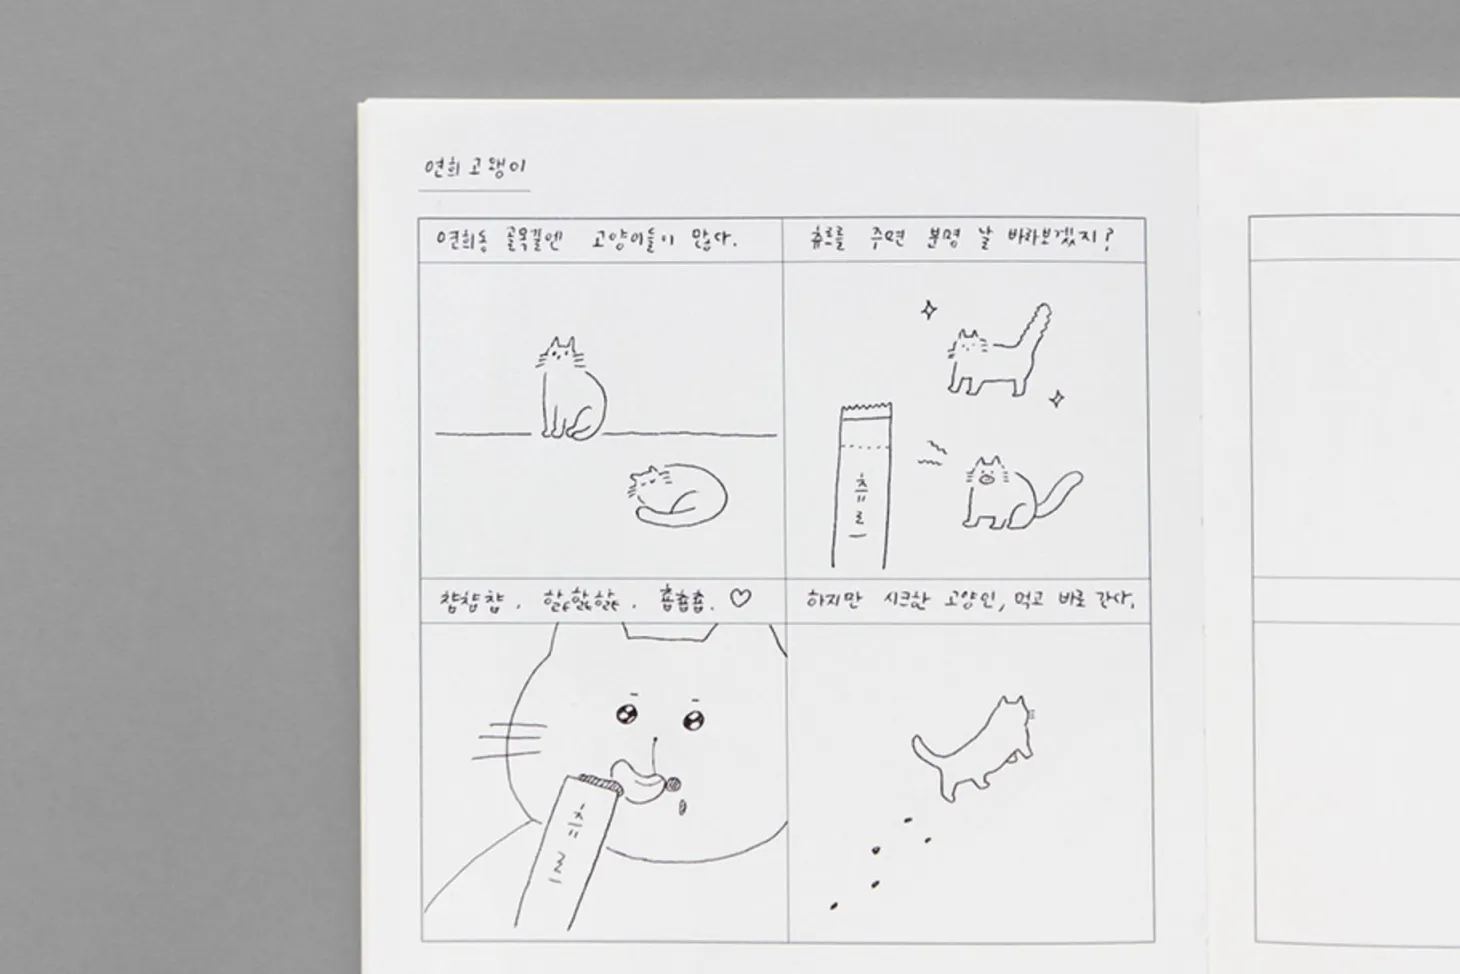 연희 고맹이
연희동 골목길엔 고양이들이 많다.
츄르를 주면 분명 날 바라보겠지?
츄르
챱챱챱. 할할할. 춉춉춉. ♡
츄르
하지만 시크한 고양인, 먹고 바로 간다.